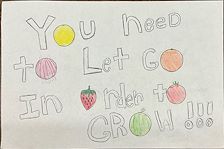 You need
to Let Go
In order to
GROW !!!